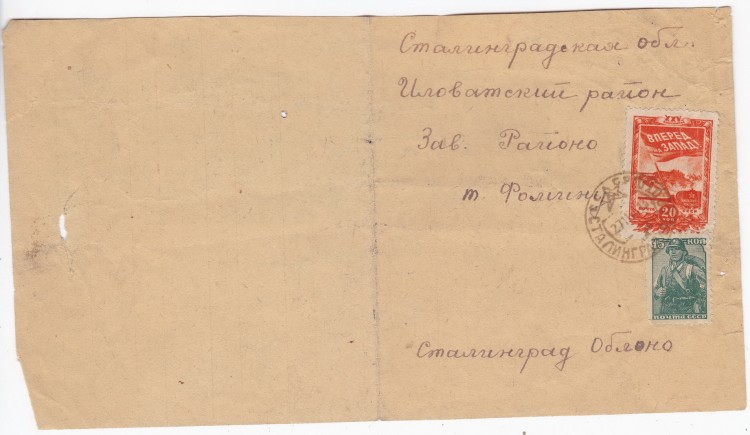 Сталинградская обл.
Иловатский район
Зав. Районо
т. Фомину
ВПЕРЕД
НА ЗАПАД!
20
СТАЛИНГРАД
15 КОП
ПОЧТА СССР
Сталинград Облоно